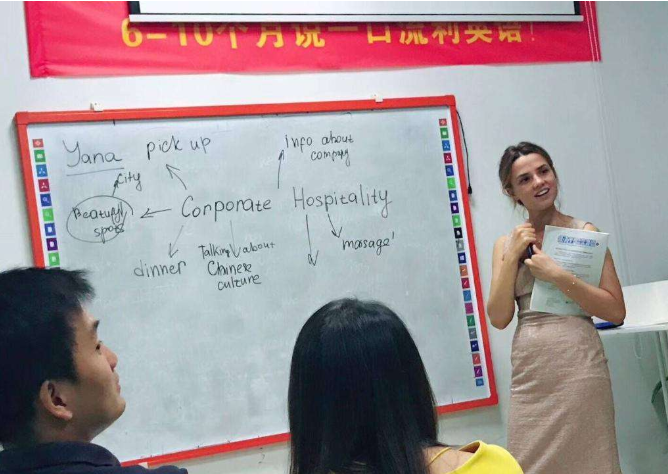 6-10个月说一口流利英语!
Yana
pick up
Info about
company
City
Beatuful
spots
Corporate Hospitality
dinner
Talking about
Chinese
culture
massage